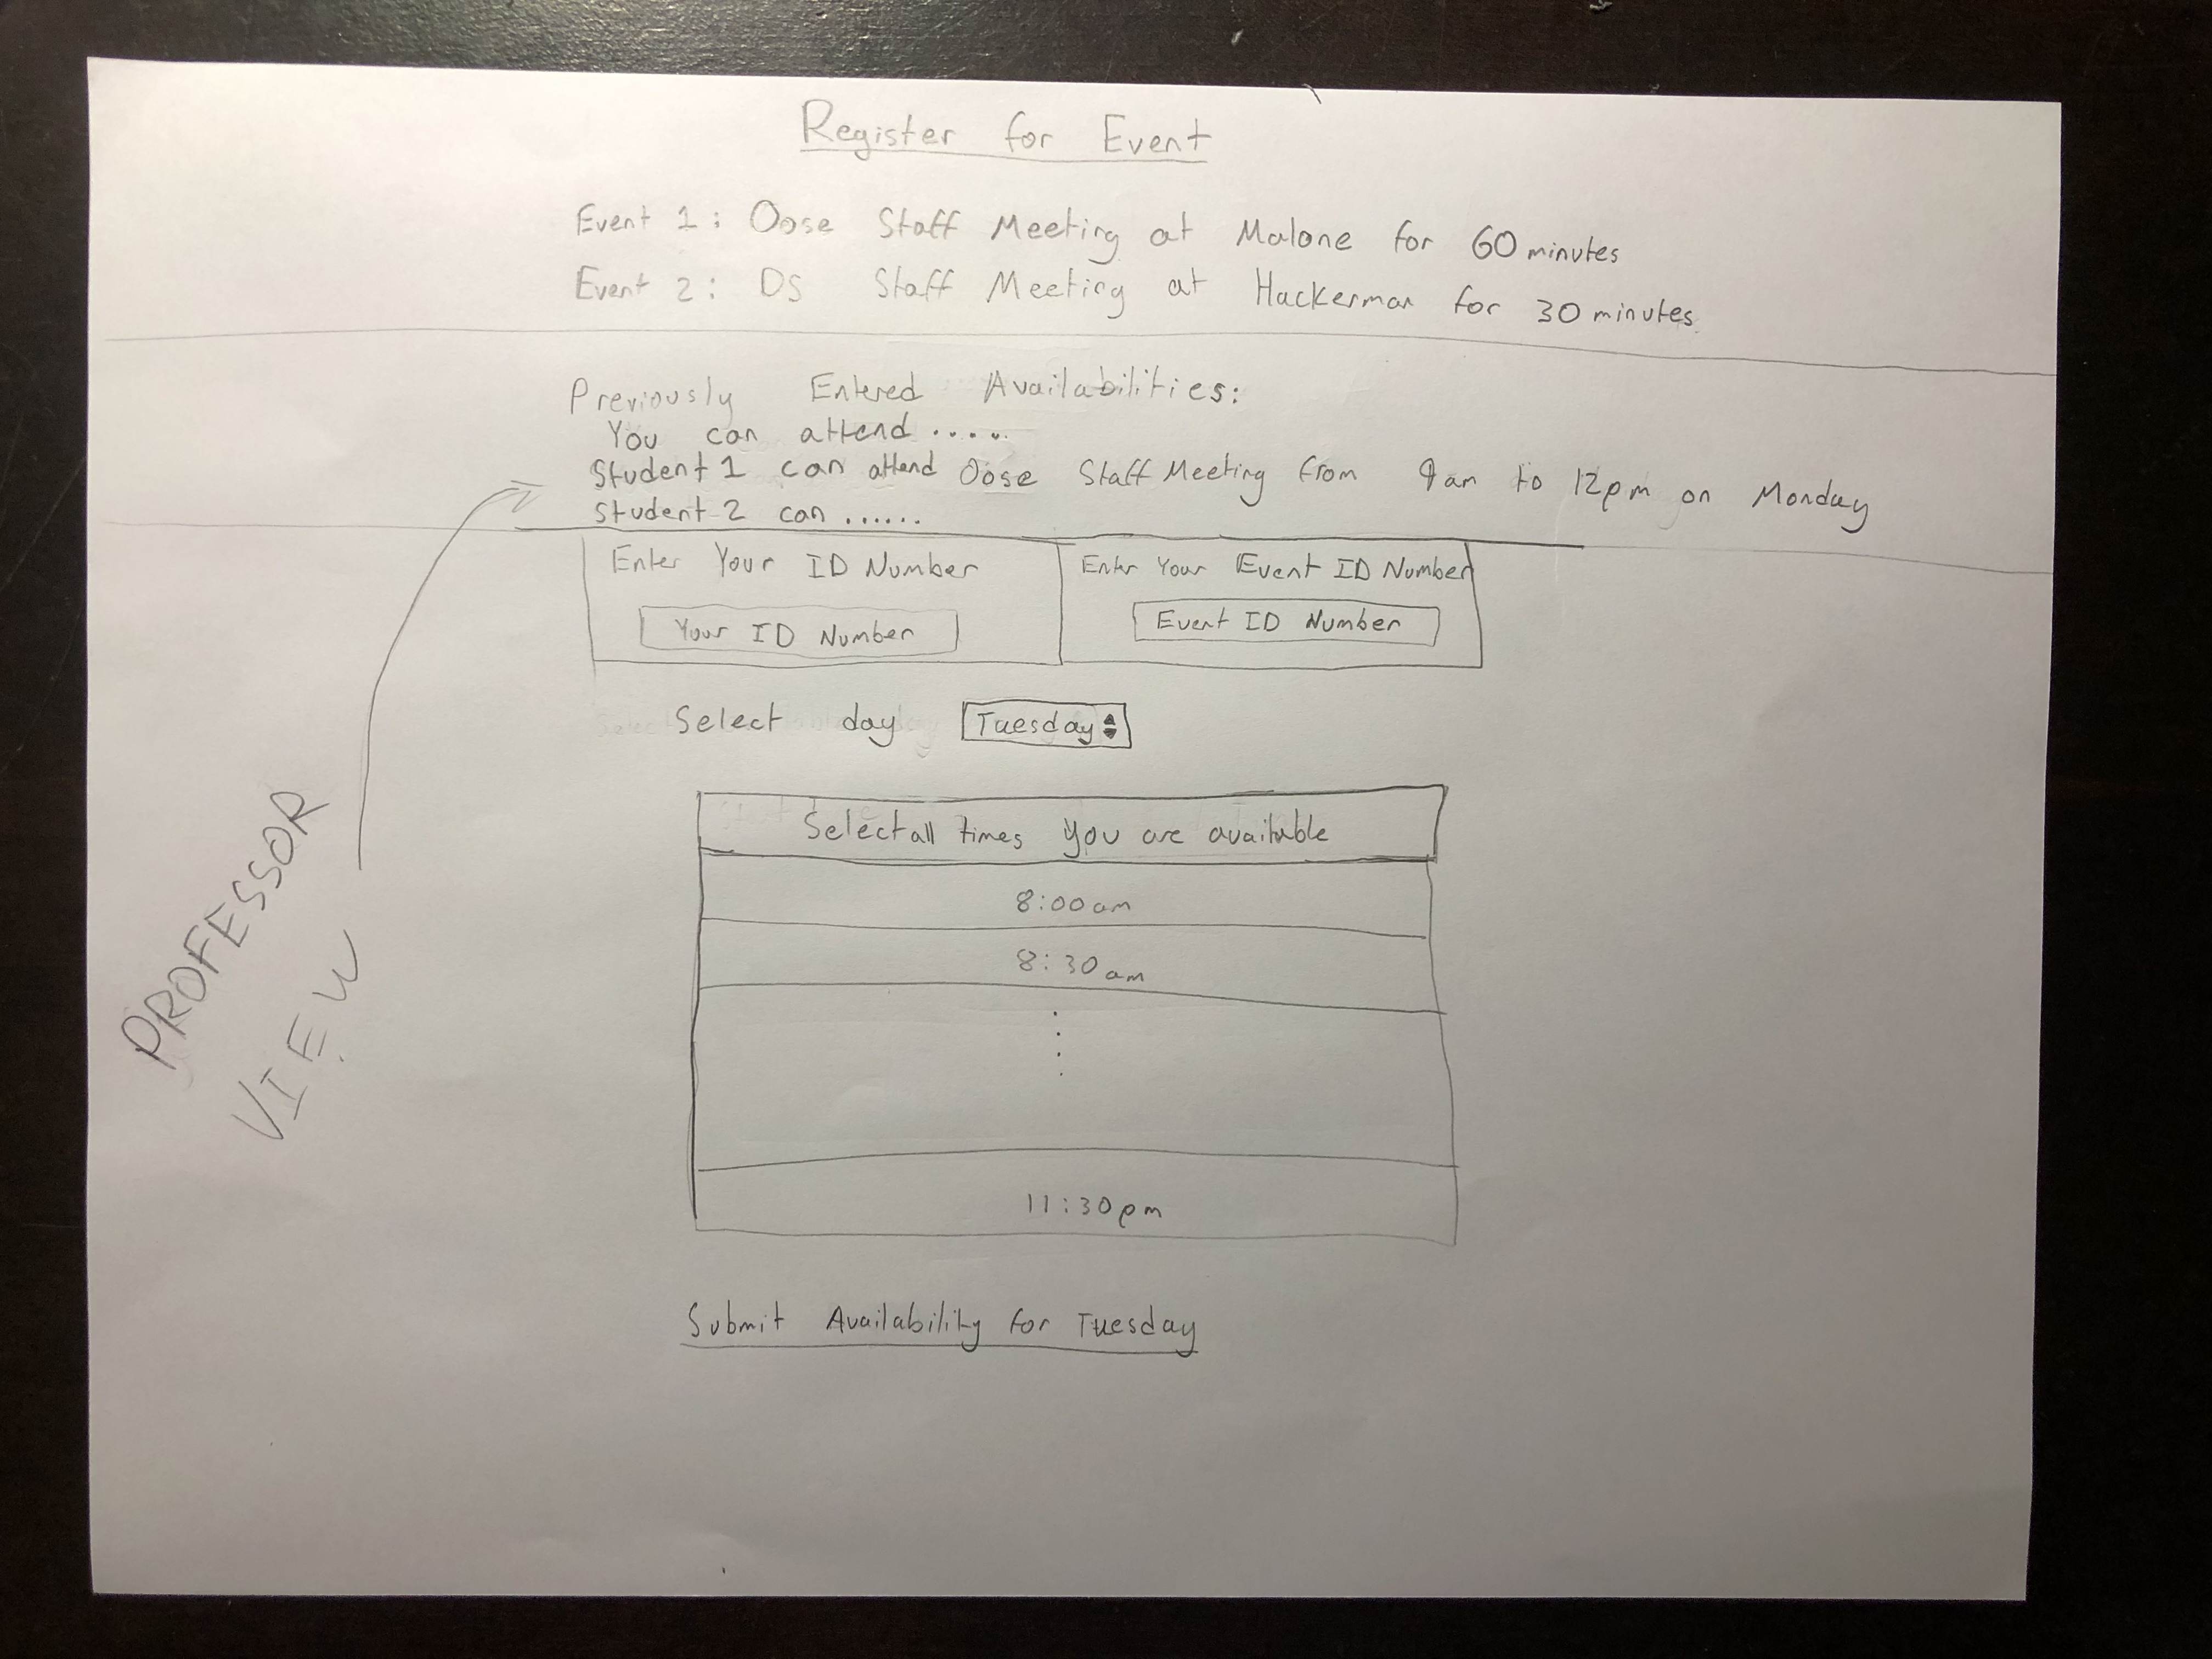 Register for Event
Event 1: Oose Staff Meeting at Malone for 60 minutes
Event 2: DS Staff Meeting at Hackerman for 30 minutes.
Previously Entered Availabilities:
You can attend .....
Student 1 can attend Oose Staff Meeting from 9am to 12pm on Monday
Student 2 can ......
Enter Your ID Number
Enter Your Event ID Number
Your ID Number
Event ID Number
Select day Tuesday
Select all times you are available
8:00am
8:30am
11:30pm
Submit Availability for Tuesday
PROFESSOR
VIEW